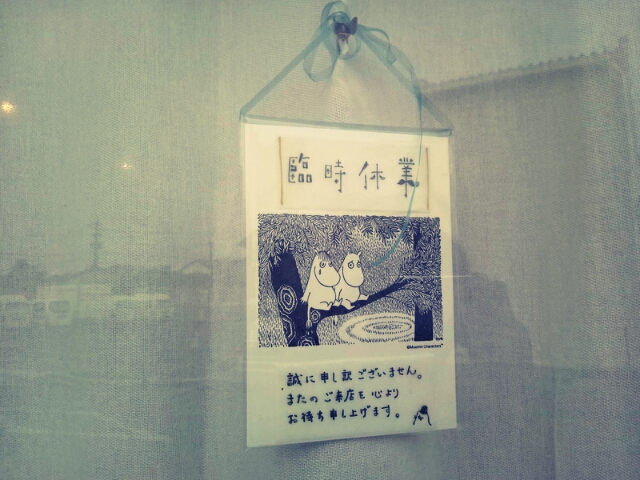 臨時休業
©Moomin Characters™
誠に申し訳ございません。
またのご来店を心より
お待ち申し上げます。